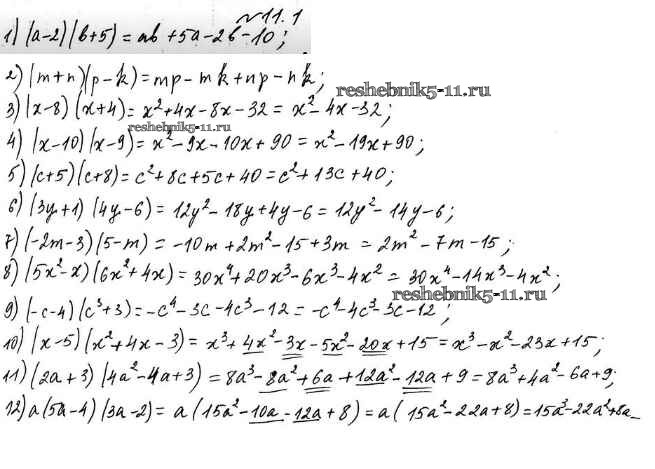 №11.1
1) (a-2)(b+5)=ab+5a-2b-10;
2) (m+n)(p-k)=mp-mk+np-nk;
reshebnik5-11.ru
3) (x-8)(x+4)=x²+4x-8x-32=x²-4x-32;
reshebnik5-11.ru
4) (x-10)(x-9)=x²-9x-10x+90=x²-19x+90;
5) (c+5)(c+8)=c²+8c+5c+40=c²+13c+40;
6) (3y+1)(4y-6)=12y²-18y+4y-6=12y²-14y-6;
7) (-2m-3)(5-m)=-10m+2m²-15+3m=2m²-7m-15;
8) (5x²-x)(6x²+4x)=30x⁴+20x³-6x³-4x²=30x⁴-14x³-4x²;
reshebnik5-11.ru
9) (-c-4)(c³+3)=-c⁴-3c-4c³-12=-c⁴-4c³-3c-12;
10) (x-5)(x²+4x-3)=x³+4x²-3x-5x²-20x+15=x³-x²-23x+15;
11) (2a+3)(4a²-4a+3)=8a³-8a²+6a+12a²-12a+9=8a³+4a²-6a+9;
12) a(5a-4)(3a-2)=a(15a²-10a-12a+8)=a(15a²-22a+8)=15a³-22a²+8a